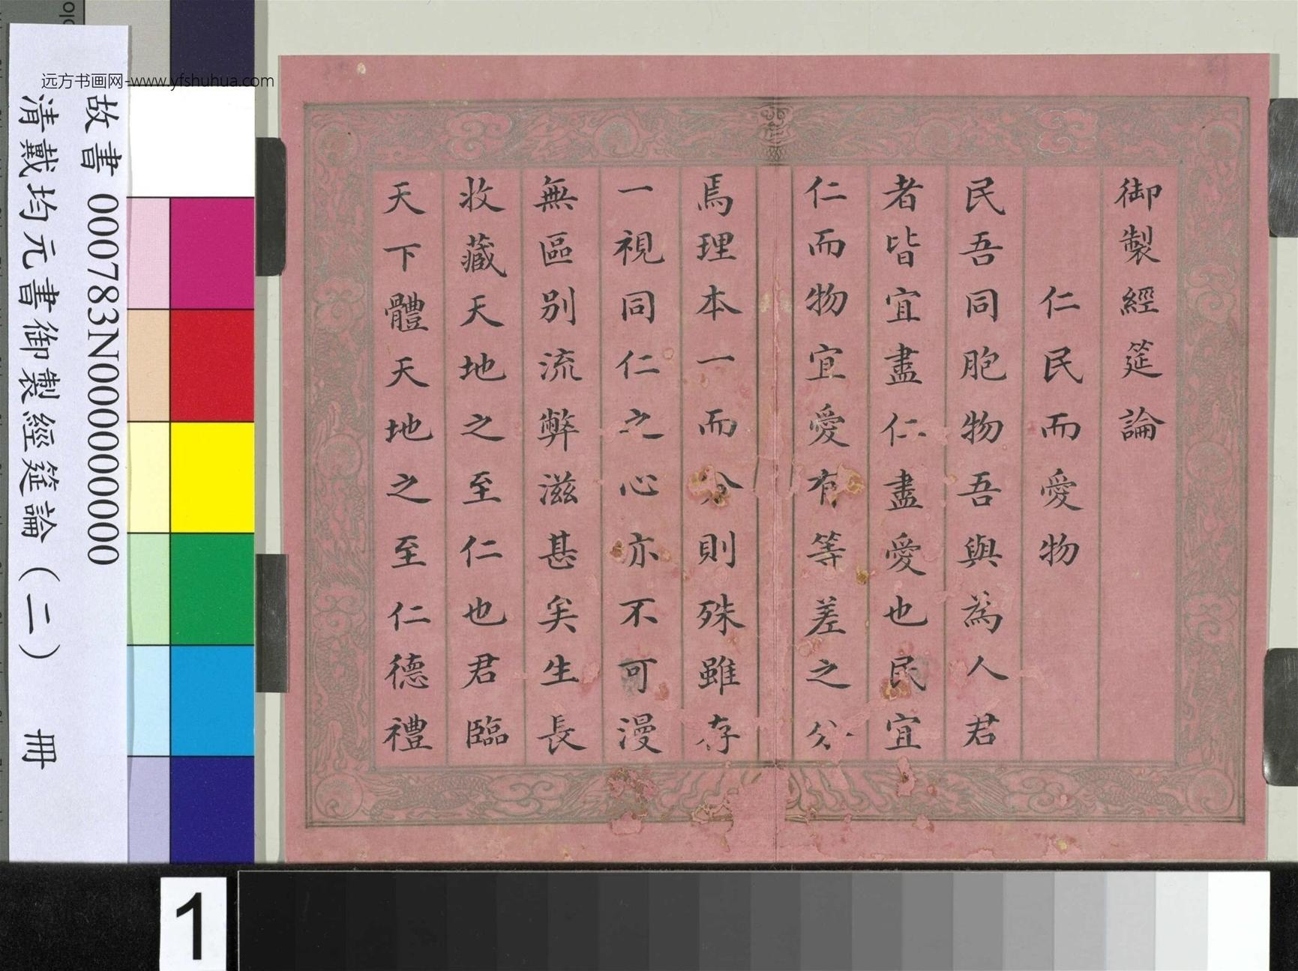 远方书画网-www.yfshuhua.com
故書 000783N000000000
清戴均元書御製經筵論（二） 冊
御製經筵論
仁民而愛物
民吾同胞物吾與為人君
者皆宜盡仁盡愛也民宜
仁而物宜愛有等差之分
焉理本一而分則殊雖存
一視同仁之心亦不可漫
無區别流弊滋甚矣生長
收藏天地之至仁也君臨
天下體天地之至仁德禮
1